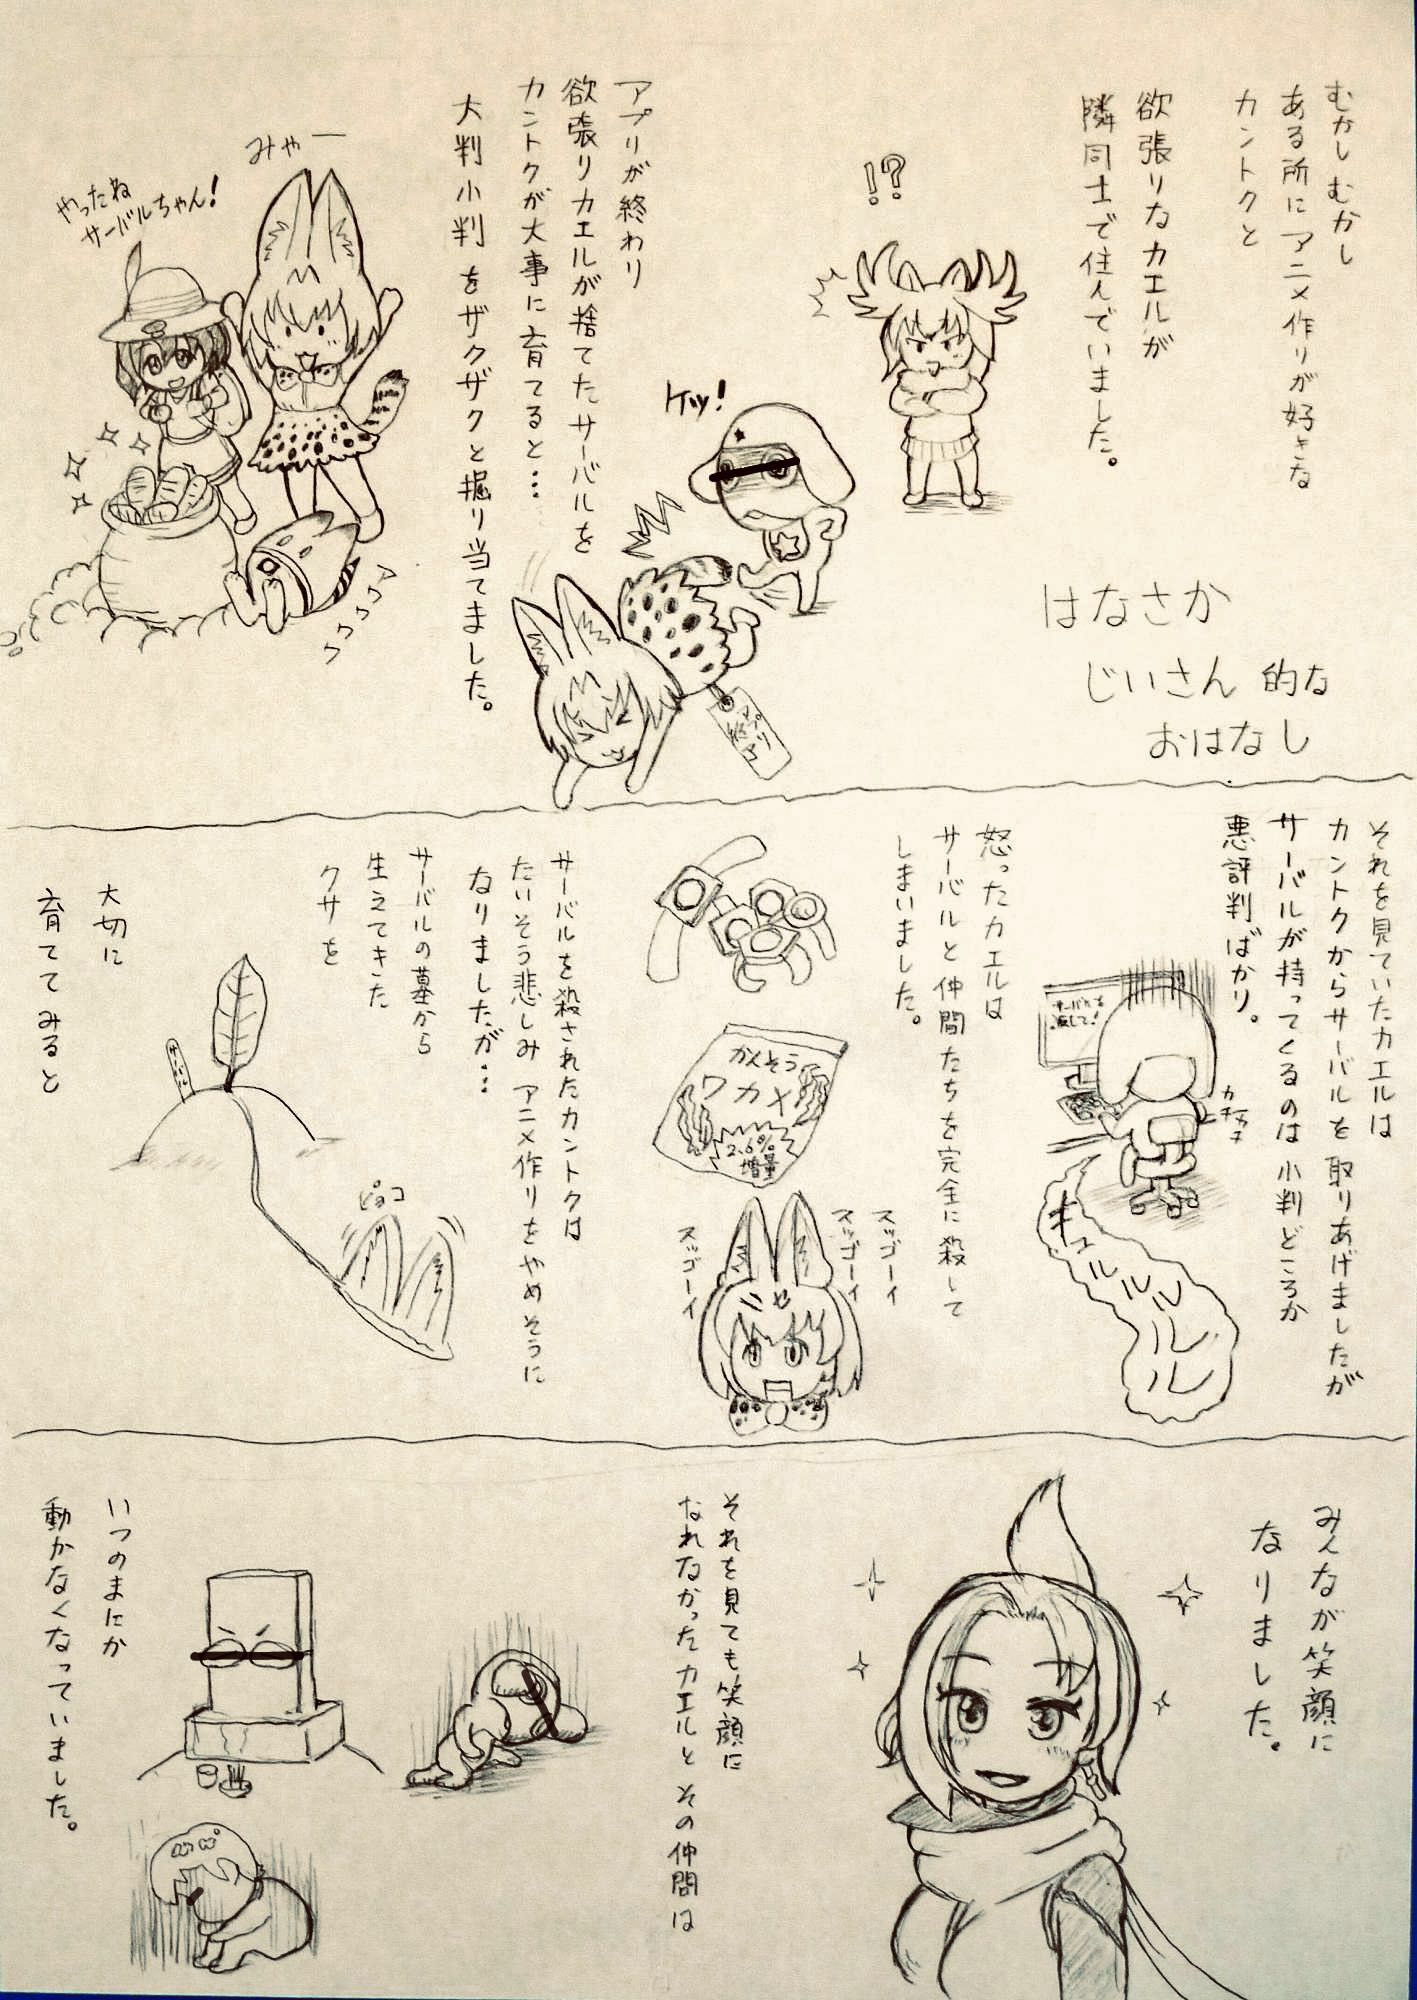 はなさか
じいさん的な
おはなし
むかしむかし
ある所にアニメ作りが好きな
カントクと
欲張りなカエルが
隣同士で住んでいました。
!?
アプリが終わり
欲張りカエルが捨てたサーバルを
カントクが大事に育てると…
大判小判をザクザクと掘り当てました。
ケッ!
アプリ
終了
みゃー
やったね
サーバルちゃん!
アワワワワ
それを見ていたカエルは
カントクからサーバルを取りあげましたが
サーバルが持ってくるのは小判どころか
悪評判ばかり。
サーバルを
返して!
カチャカチャ
キュルルルルル
怒ったカエルは
サーバルと仲間たちを完全に殺して
しまいました。
かんそう
ワカメ
2.6%
増量
スッゴーイ
スッゴーイ
スッゴーイ
サーバルを殺されたカントクは
たいそう悲しみアニメ作りをやめそうに
なりましたが…
サーバルの墓から
生えてきた
クサを
大切に
育ててみると
サーバル
ピョコ
みんなが笑顔に
なりました。
それを見ても笑顔に
なれなかったカエルとその仲間は
いつのまにか
動かなくなっていました。